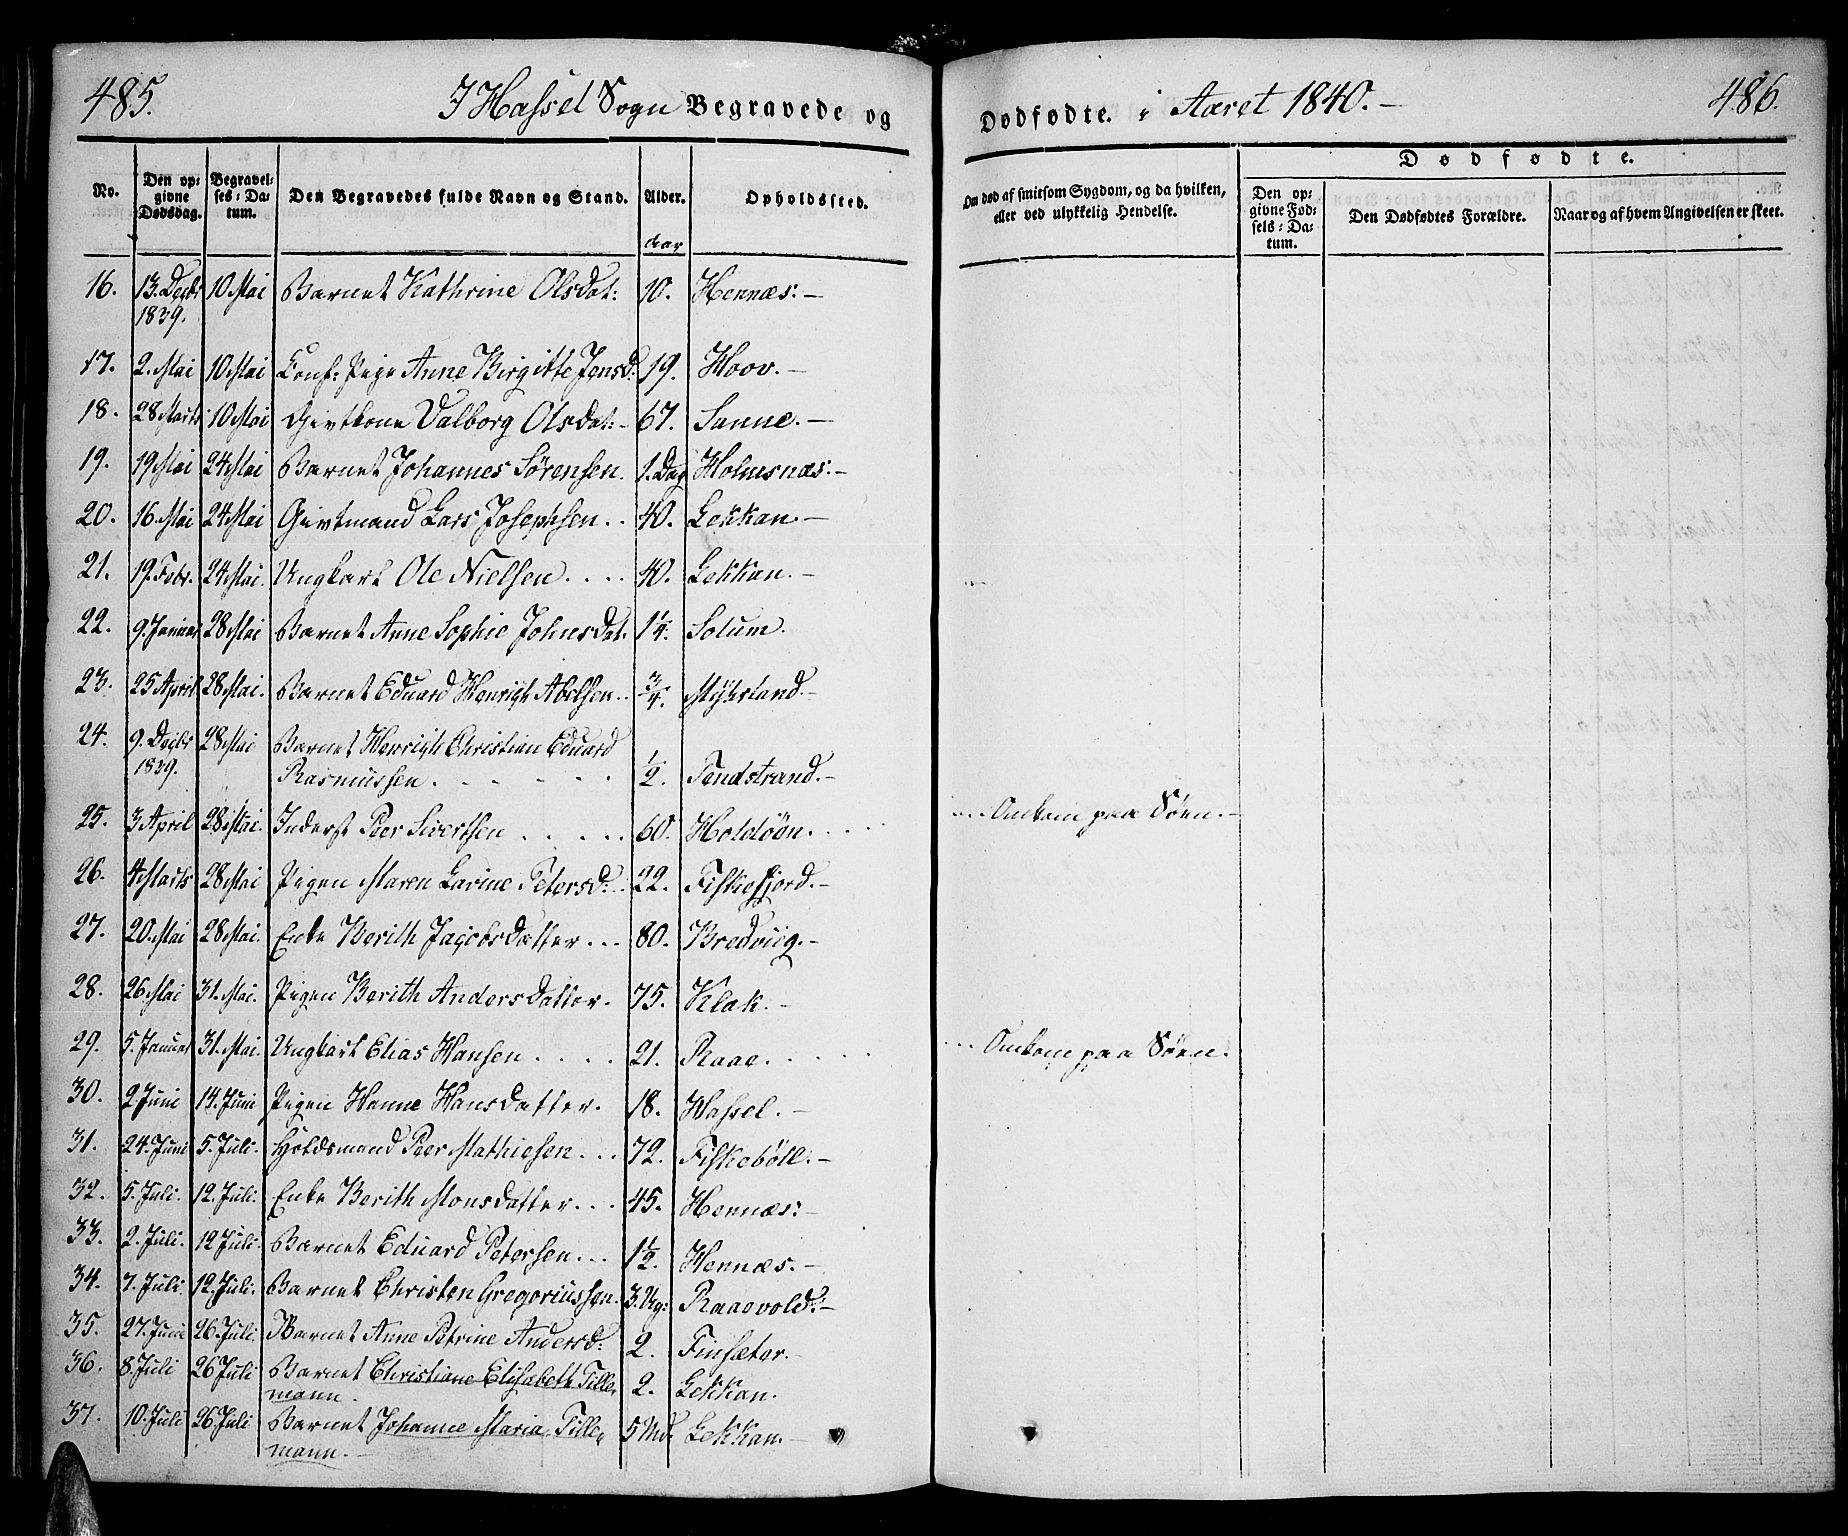 485.
I Hassel Sogn Begravede og
Dødfødte. i Aaret 1840.-
486.
No.
Den op-
givne
Dødsdag.
Begravel-
ses-Da-
tum.
Den Begravedes fulde Navn og Stand.
Alder.
Aar
Opholdssted.
Om død af smitsom Sygdom, og da hvilken,
eller ved ulykkelig Hendelse.
Dødfødte.
Den op-
givne Fød-
sels-Da-
tum.
Den Dødfødtes Forældre.
Naar og af hvem Angivelsen er skeet.
16. 13. Decbr 10 Mai Barnet Kathrine Olsdat: 10. Hennæs:-
1839.
17. 2. Mai 10 Mai Conf: Pige Anne Birgitte Jensd: 19. Hoov.-
18. 28 Marts 10 Mai Givtkone Valborg Olsdat:- 67. Sanne.-
19. 19 Mai 24 Mai Barnet Johannes Sørensen. 1. Dag Holmsnæs:-
20. 16. Mai 24 Mai Givtmand Lars Josephsen.. 40. Lekkan-
21. 19. Febr. 24 Mai. Ungkarl Ole Nielsen.... 40. Lekkan.-
22. 9. Januar 28 Mai Barnet Anne Sophie Johnsdat. 1¼. Solum.
23. 25 April 28 Mai. Barnet Eduard Henrigh Abelsen.. ¾. Myhrland.-
24. 9. Decbr 28 Mai Barnet Henrigh Christian Eduard
1839. Rasmussen. ½. Tendstrand.-
25. 3 April 28 Mai. Inderst Peer Siverssen..... 60. Holdøen.... Omkom paa Søen.-
26. 4 Marts 28 Mai Pigen Maren Larine Petersd:. 22. Fiskefjord.-
27. 20. Mai 28 Mai. Enke Berith Jacobsdatter... 80. Bredviig.-
28. 26 Mai 31. Mai. Pigen Berith Andersdatter. 75. Klak.-
29. 5. Januar 31. Mai. Ungkarl Elias Hansen.... 21. Raae.... Omkom paa Søen.
30. 2 Juni 14. Juni Pigen Hanne Hansdatter. 18. Hassel.-
31. 24. Juni 5. Juli. Holdsmand Peer Mathiesen... 72. Fiskebøll.-
32. 5. Juli. 12. Juli. Enke Berith Monsdatter... 45. Hennæs:-
33. 2. Juli. 12 Juli. Barnet Eduard Petersen... 1½. Hennæs.-
34. 7. Juli. 12. Juli. Barnet Christen Gregoriussen. 3. Ug: Raaevold:-
35. 27. Juni 26. Juli Barnet Anne Petrine Andersd: 2. Finsæter.-
36. 8. Juli 26 Juli Barnet Christiane Elisabeth Tille-
mann. 2. Lekkan.
37. 10. Juli 26. Juli Barnet Johanne Maria Tille-
mann.- 5 Md. Lekkan.-